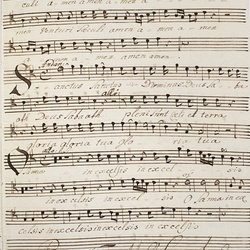 culi amen amen amen
venturi sæculi amen amen
amen amen
Sanctus Sanctus Dominus Deus Saba
oth Deus Sabaoth pleni sunt cæli et terra
Gloria gloria tua gloria tua
in excelsis in excel sis
in excelsis in excelsis Osanna in ex
celsis in excelsis in excelsis in excelsis